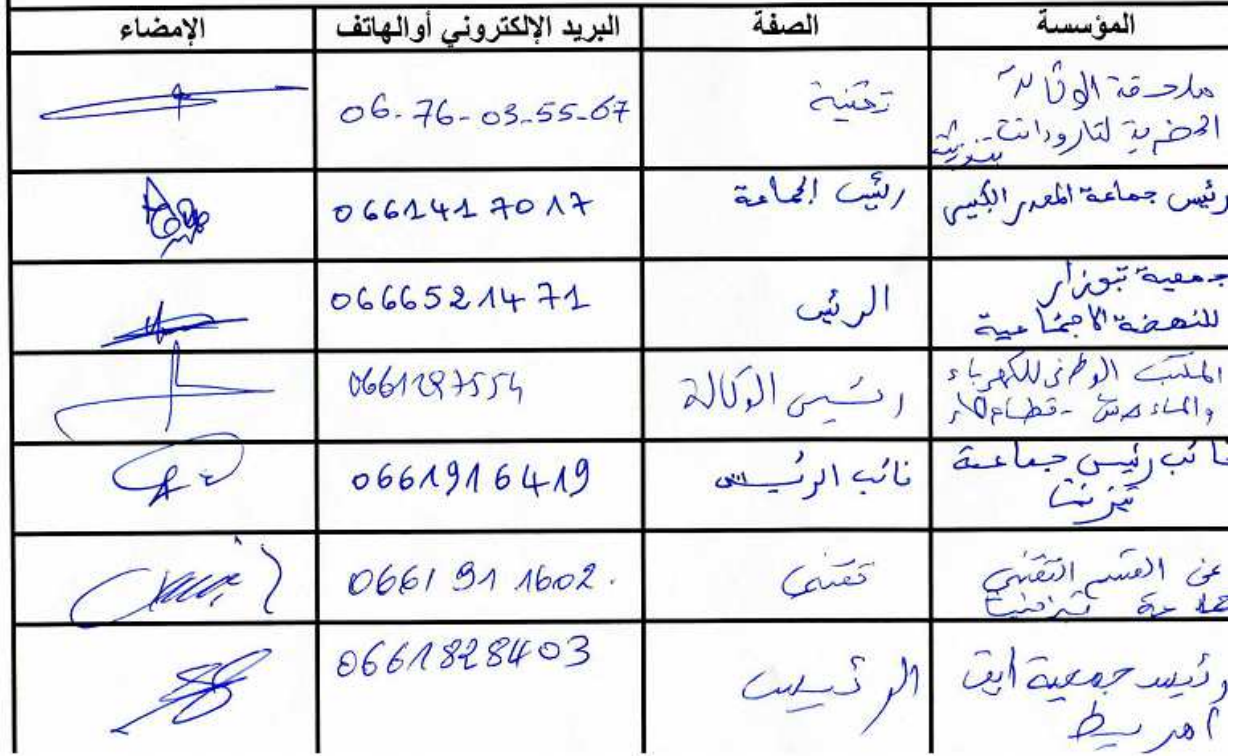 المؤسسة الصفة البريد الإلكتروني أوالهاتف الإمضاء
ملحقة الوكالة
الحضرية لتارودانت
بتيزنيت
تقنية 06-76-03-55-67
رئيس جماعة المعدر الكبير رئيس الجماعة 0661417017
جمعية
للنهضة الاجتماعية
الرئيس 0666521471
المكتب الوطني للكهرباء
والماء قطاع
رئيس الوكالة 0661297554
نائب رئيس جماعة
تيزنيت
نائب الرئيس 0661916419
عن القسم التقني
جماعة تيزنيت
تقني 0661911602.
رئيس جمعية
الرئيس 0661828403